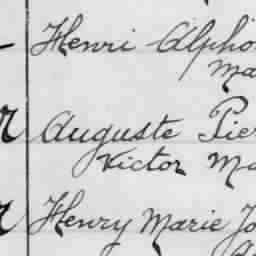 Henri Alpho
Ma
Auguste Pier
Victor Ma
Henry Marie Jo